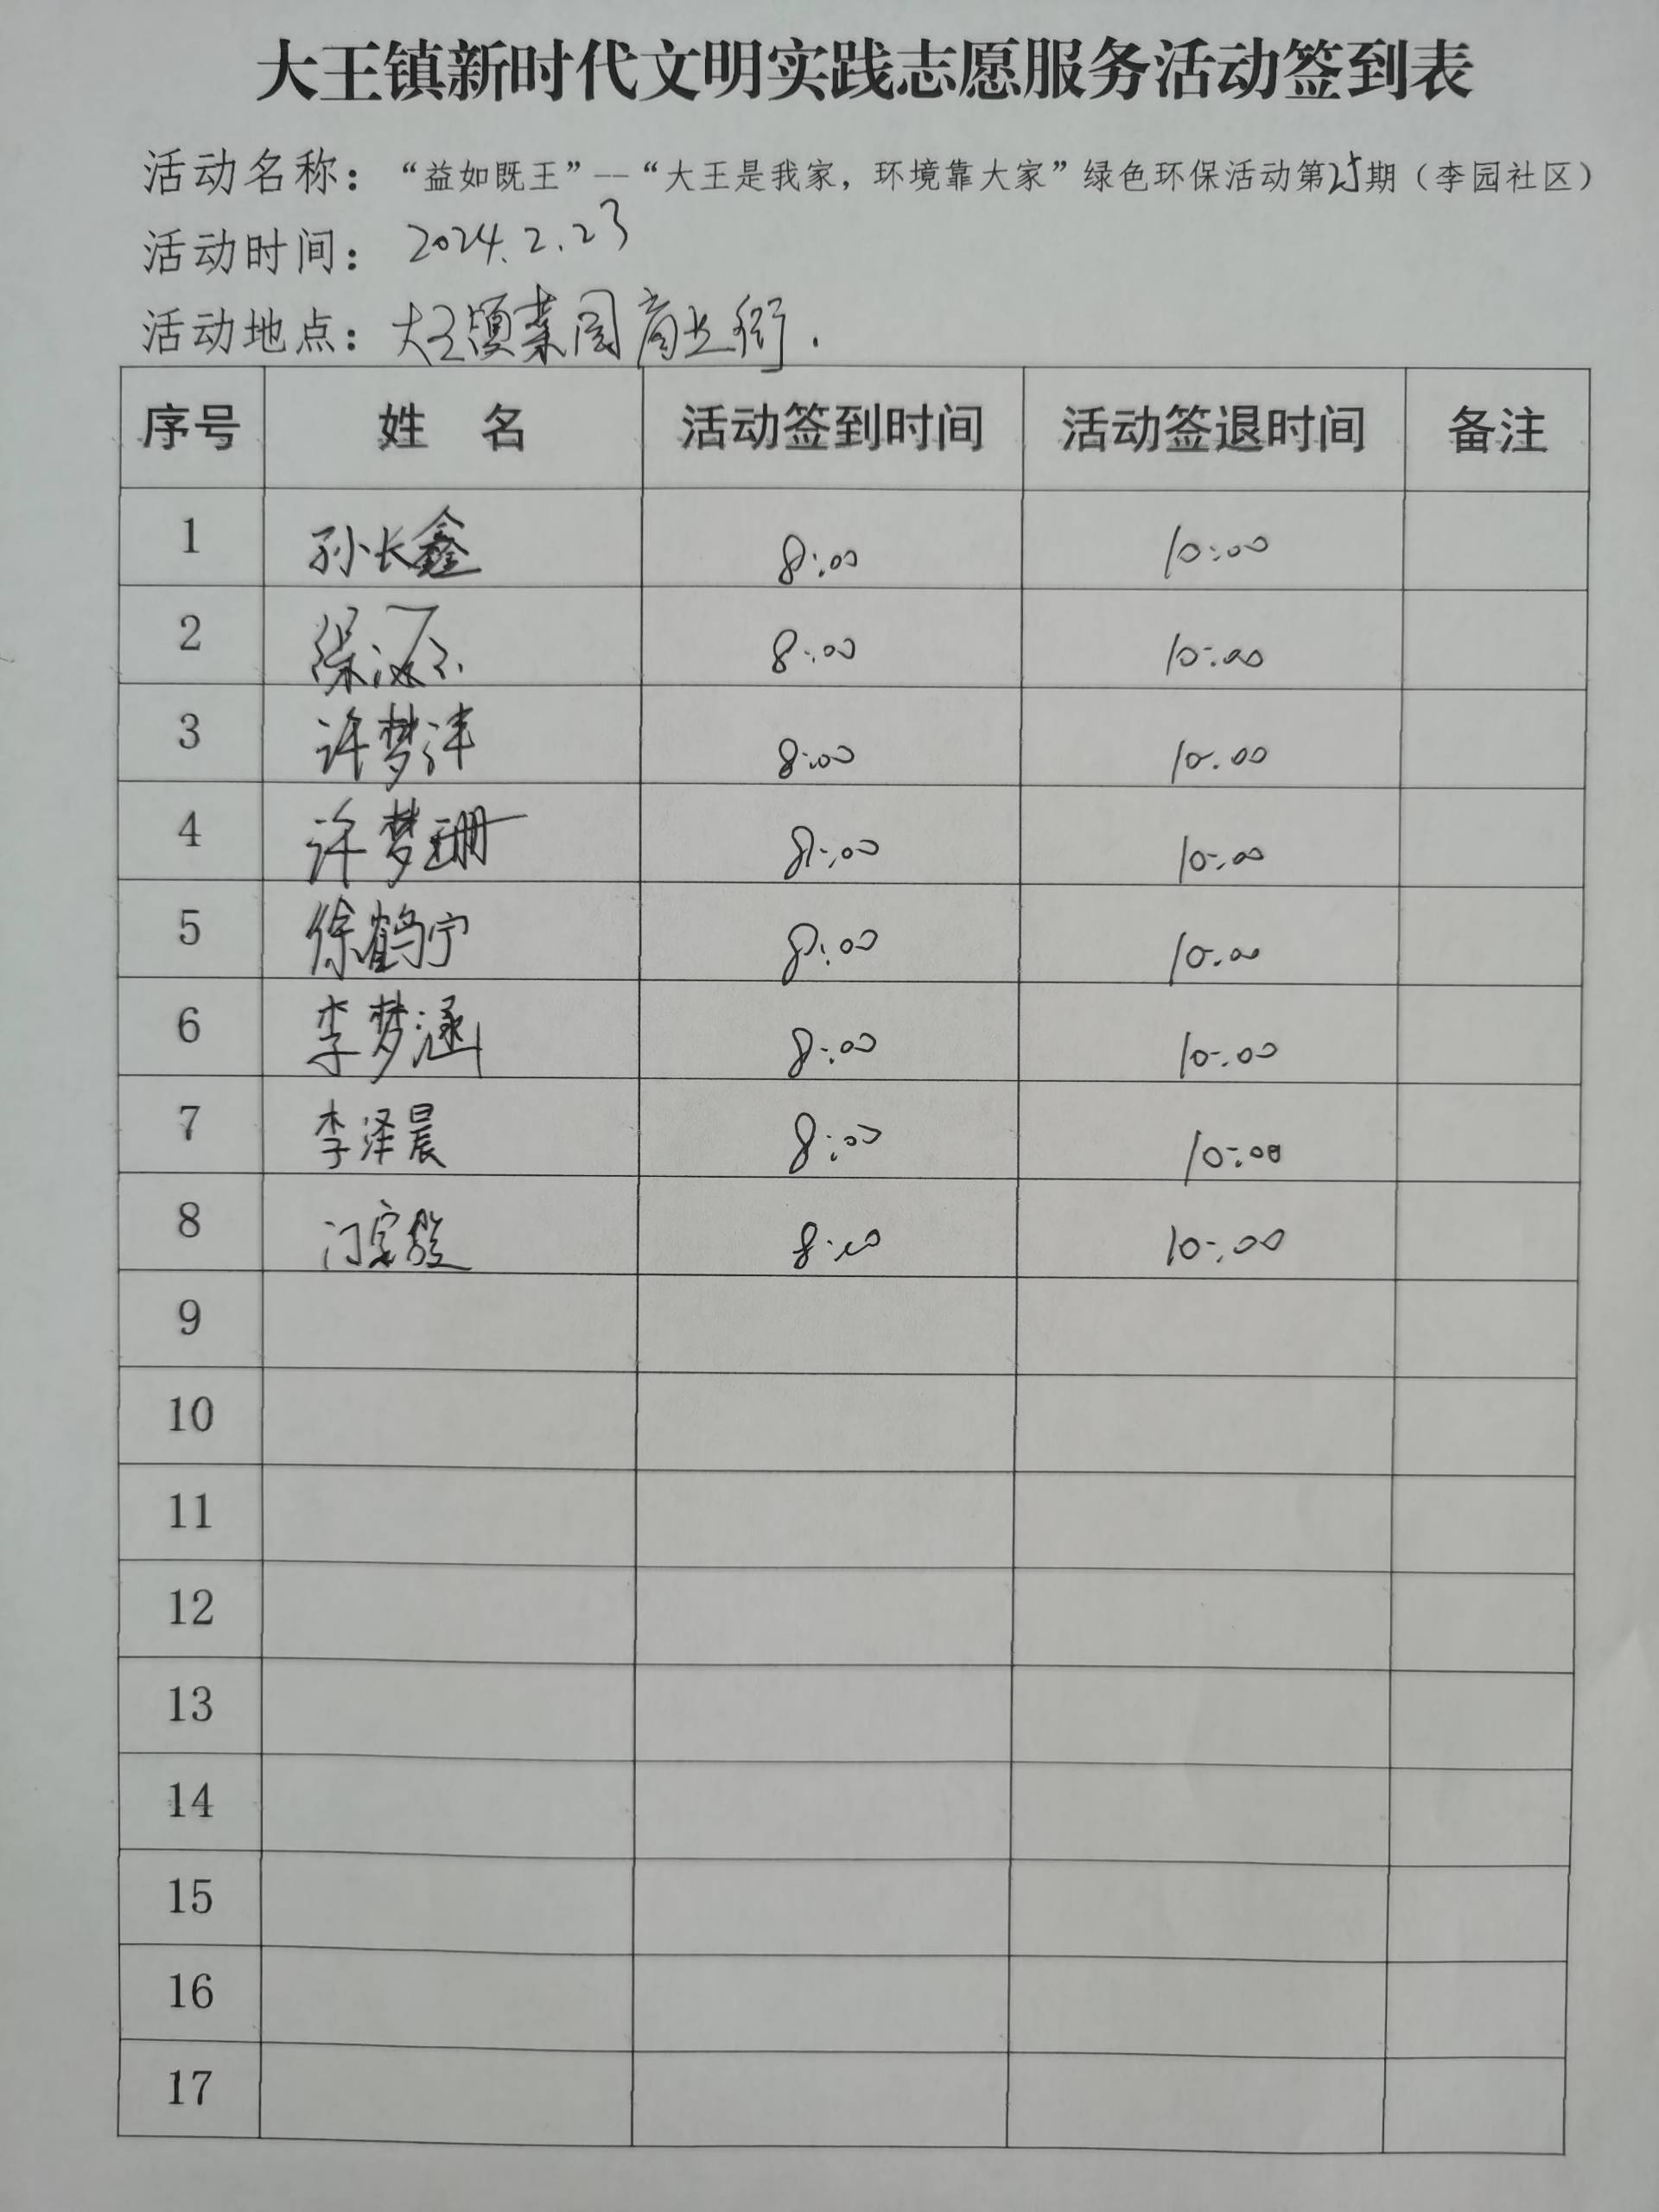 大王镇新时代文明实践志愿服务活动签到表
活动名称：“益如既王”--“大王是我家，环境靠大家”绿色环保活动第25期（李园社区）
活动时间：2024.2.23
活动地点：大王镇 商业街.
序号 姓 名 活动签到时间 活动签退时间 备注
1 孙长鑫 8:00 10:00
2 8:00 10:00
3 许梦沣 8:00 10:00
4 许梦珊 8:00 10:00
5 徐鹤宁 8:00 10:00
6 李梦涵 8:00 10:00
7 李泽晨 8:00 10:00
8 8:00 10:00
9
10
11
12
13
14
15
16
17